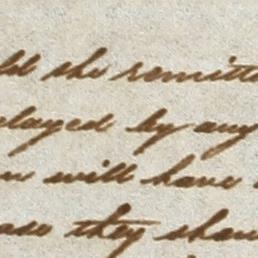 ld the remitte
elayed by any
n will have
ase they shou